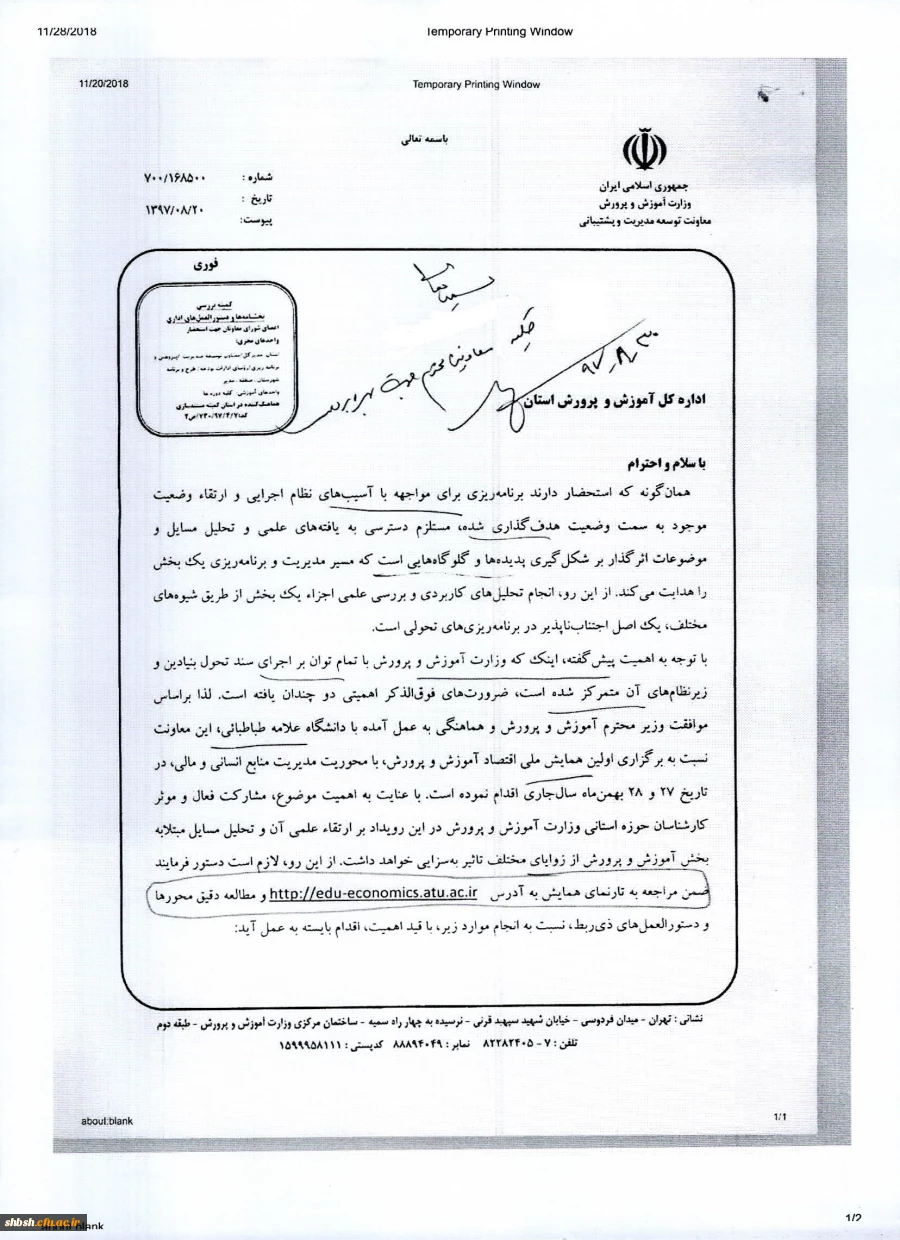 11/28/2018
Temporary Printing Window
11/20/2018
Temporary Printing Window
باسمه تعالی
جمهوری اسلامی ایران
وزارت آموزش و پرورش
معاونت توسعه مدیریت و پشتیبانی
شماره : ۷۰۰/۱۶۸۵۰۰
تاریخ : ۱۳۹۷/۰۸/۲۰
پیوست:
فوری
کمیته بررسی
بخشنامه‌ها و دستورالعمل‌های اداری
اعضای شورای معاونان جهت استحضار
واحدهای مجری:
برنامه ریزی /روسای ادارات بودجه/ طرح و برنامه
شهرستان، منطقه : مدیر
واحدهای آموزشی: کلیه دوره ها
هماهنگ‌کننده در استان کمیته مستندسازی
کلیه معاونین محترم جهت
۹۷-۸-۳۰
اداره کل آموزش و پرورش استان
با سلام و احترام
همان‌گونه که استحضار دارند برنامه‌ریزی برای مواجهه با آسیب‌های نظام اجرایی و ارتقاء وضعیت
موجود به سمت وضعیت هدف‌گذاری شده، مستلزم دسترسی به یافته‌های علمی و تحلیل مسایل و
موضوعات اثرگذار بر شکل‌گیری پدیده‌ها و گلوگاه‌هایی است که مسیر مدیریت و برنامه‌ریزی یک بخش
را هدایت می‌کند. از این رو، انجام تحلیل‌های کاربردی و بررسی علمی اجزاء یک بخش از طریق شیوه‌های
مختلف، یک اصل اجتناب‌ناپذیر در برنامه‌ریزی‌های تحولی است.
با توجه به اهمیت پیش‌گفته، اینک که وزارت آموزش و پرورش با تمام توان بر اجرای سند تحول بنیادین و
زیرنظام‌های آن متمرکز شده است، ضرورت‌های فوق‌الذکر اهمیتی دو چندان یافته است. لذا براساس
موافقت وزیر محترم آموزش و پرورش و هماهنگی به عمل آمده با دانشگاه علامه طباطبائی، این معاونت
نسبت به برگزاری اولین همایش ملی اقتصاد آموزش و پرورش، با محوریت مدیریت منابع انسانی و مالی، در
تاریخ ۲۷ و ۲۸ بهمن‌ماه سال‌جاری اقدام نموده است. با عنایت به اهمیت موضوع، مشارکت فعال و موثر
کارشناسان حوزه استانی وزارت آموزش و پرورش در این رویداد بر ارتقاء علمی آن و تحلیل مسایل مبتلابه
بخش آموزش و پرورش از زوایای مختلف تاثیر به‌سزایی خواهد داشت. از این رو، لازم است دستور فرمایند
ضمن مراجعه به تارنمای همایش به آدرس http://edu-economics.atu.ac.ir و مطالعه دقیق محورها
و دستورالعمل‌های ذی‌ربط، نسبت به انجام موارد زیر، با قید اهمیت، اقدام بایسته به عمل آید:
نشانی : تهران - میدان فردوسی - خیابان شهید سپهبد قرنی - نرسیده به چهار راه سمیه - ساختمان مرکزی وزارت آموزش و پرورش - طبقه دوم
تلفن : ۷ - ۸۲۲۸۲۴۰۵ نمابر : ۸۸۸۹۴۰۴۹ کدپستی : ۱۵۹۹۹۵۸۱۱۱
about:blank
1/1
shbsh.cfu.ac.ir
1/2